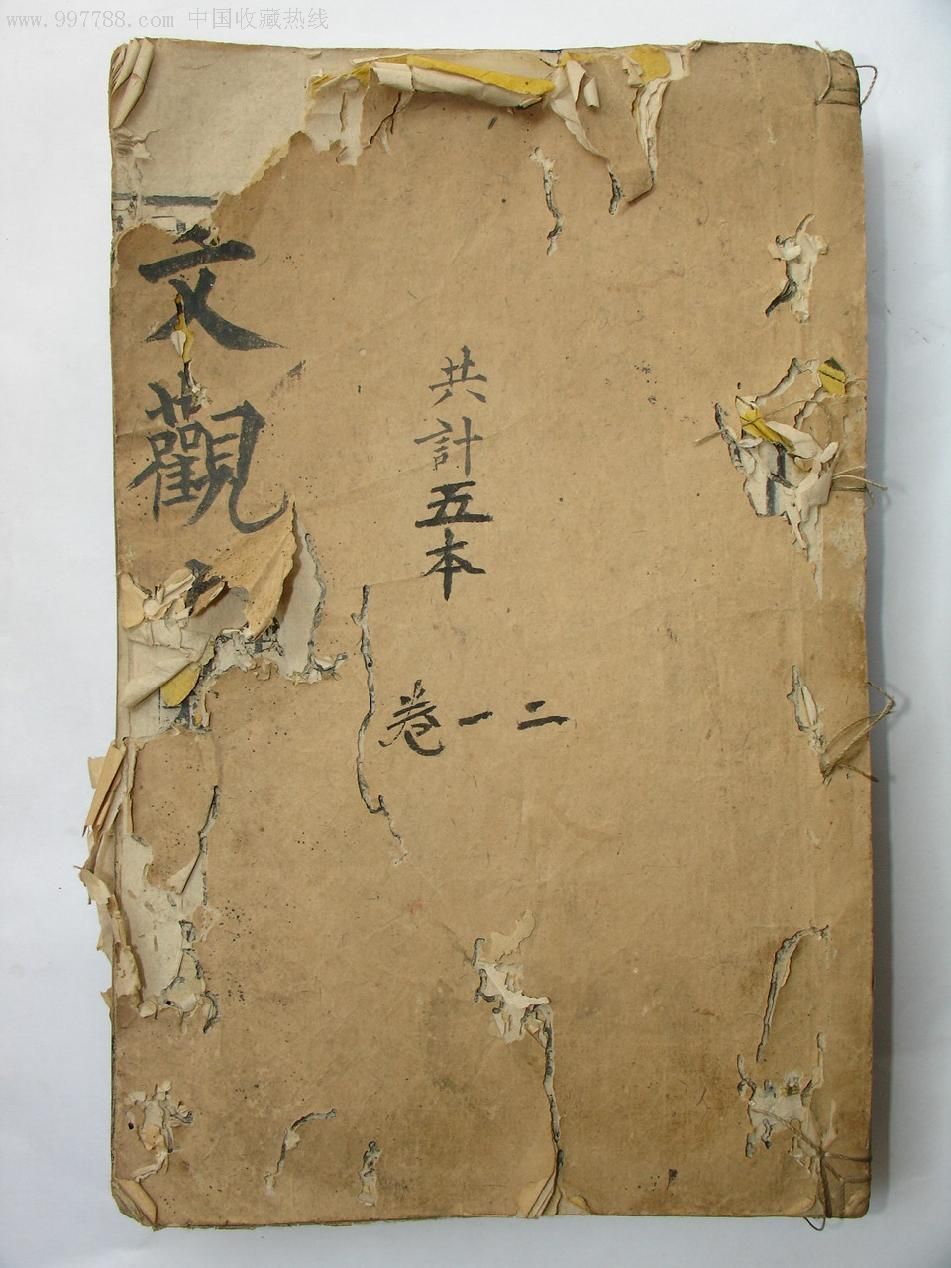 www.997788.com 中国收藏热线
文觀
共計五本
卷一二